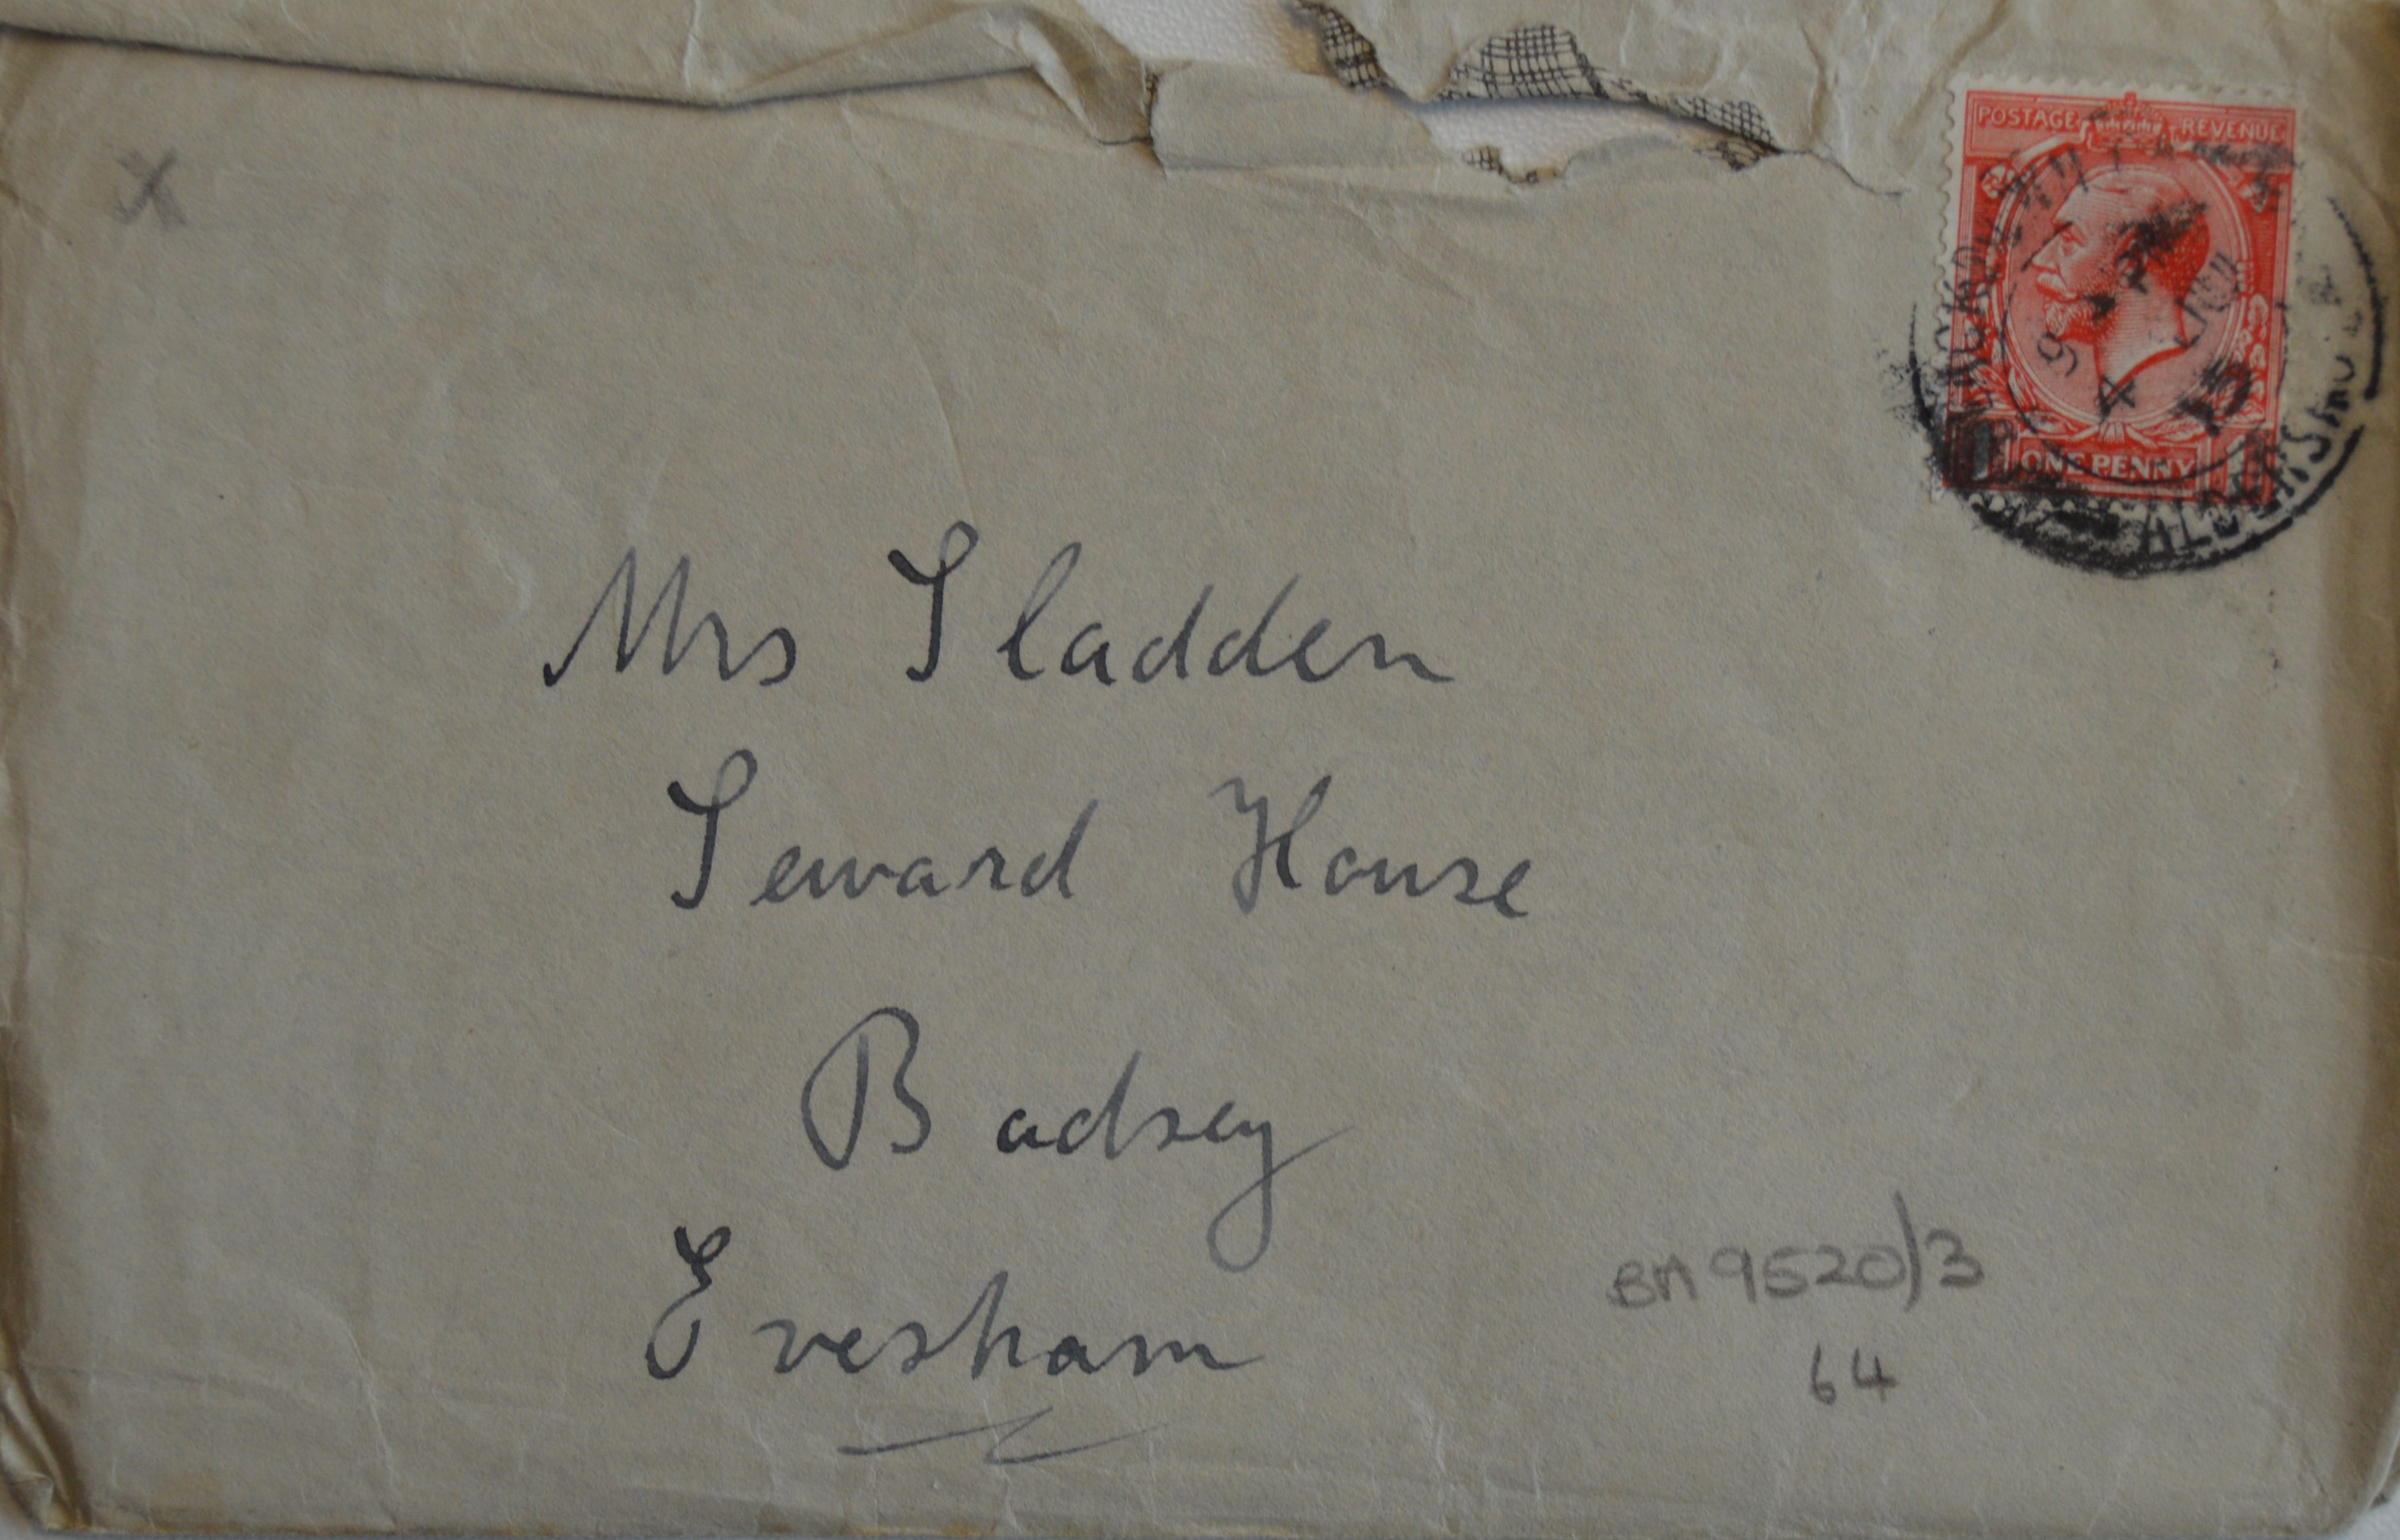 POSTAGE REVENUE
9 PM
4 JU
15
ALDERSHOT
ONE PENNY
X
Mrs Sladden
Seward House
Badsey
Evesham
BM 9520/3
64